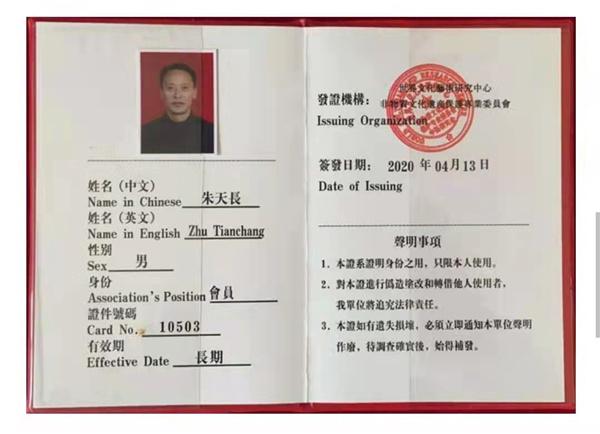 姓名（中文）
Name in Chinese 朱天長
姓名（英文）
Name in English Zhu Tianchang
性別
Sex 男
身份
Association's Position 會員
證件號碼
Card No. 10503
有效期
Effective Date 長期
世界文化藝術研究中心
發證機構： 非物質文化遺産保護專業委員會
Issuing Organization
簽發日期： 2020 年 04 月 13 日
Date of Issuing
聲明事項
1. 本證系證明身份之用，只限本人使用。
2. 對本證進行僞造塗改和轉借他人使用者，
我單位將追究法律責任。
3. 本證如有遺失損壞，必須立即通知本單位聲明
作廢，待調查確實後，始得補發。